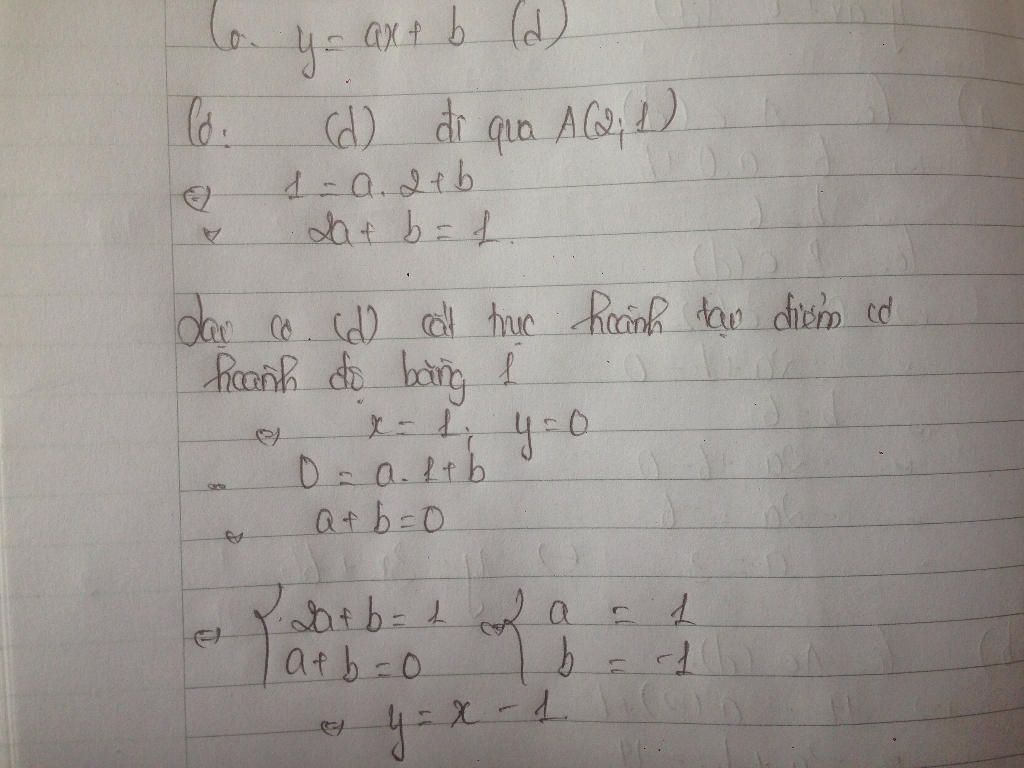 Có. y = ax + b (d)
Có: (d) đi qua A(2; 1)
⇔ 1 = a. 2 + b
⇔ 2a + b = 1.
lại có (d) cắt trục hoành tại điểm có
hoành độ bằng 1
⇔ x = 1; y = 0
⇔ 0 = a. 1 + b
⇔ a + b = 0
⇔ { 2a + b = 1 ⇔ { a = 1
a + b = 0 b = -1
⇔ y = x - 1